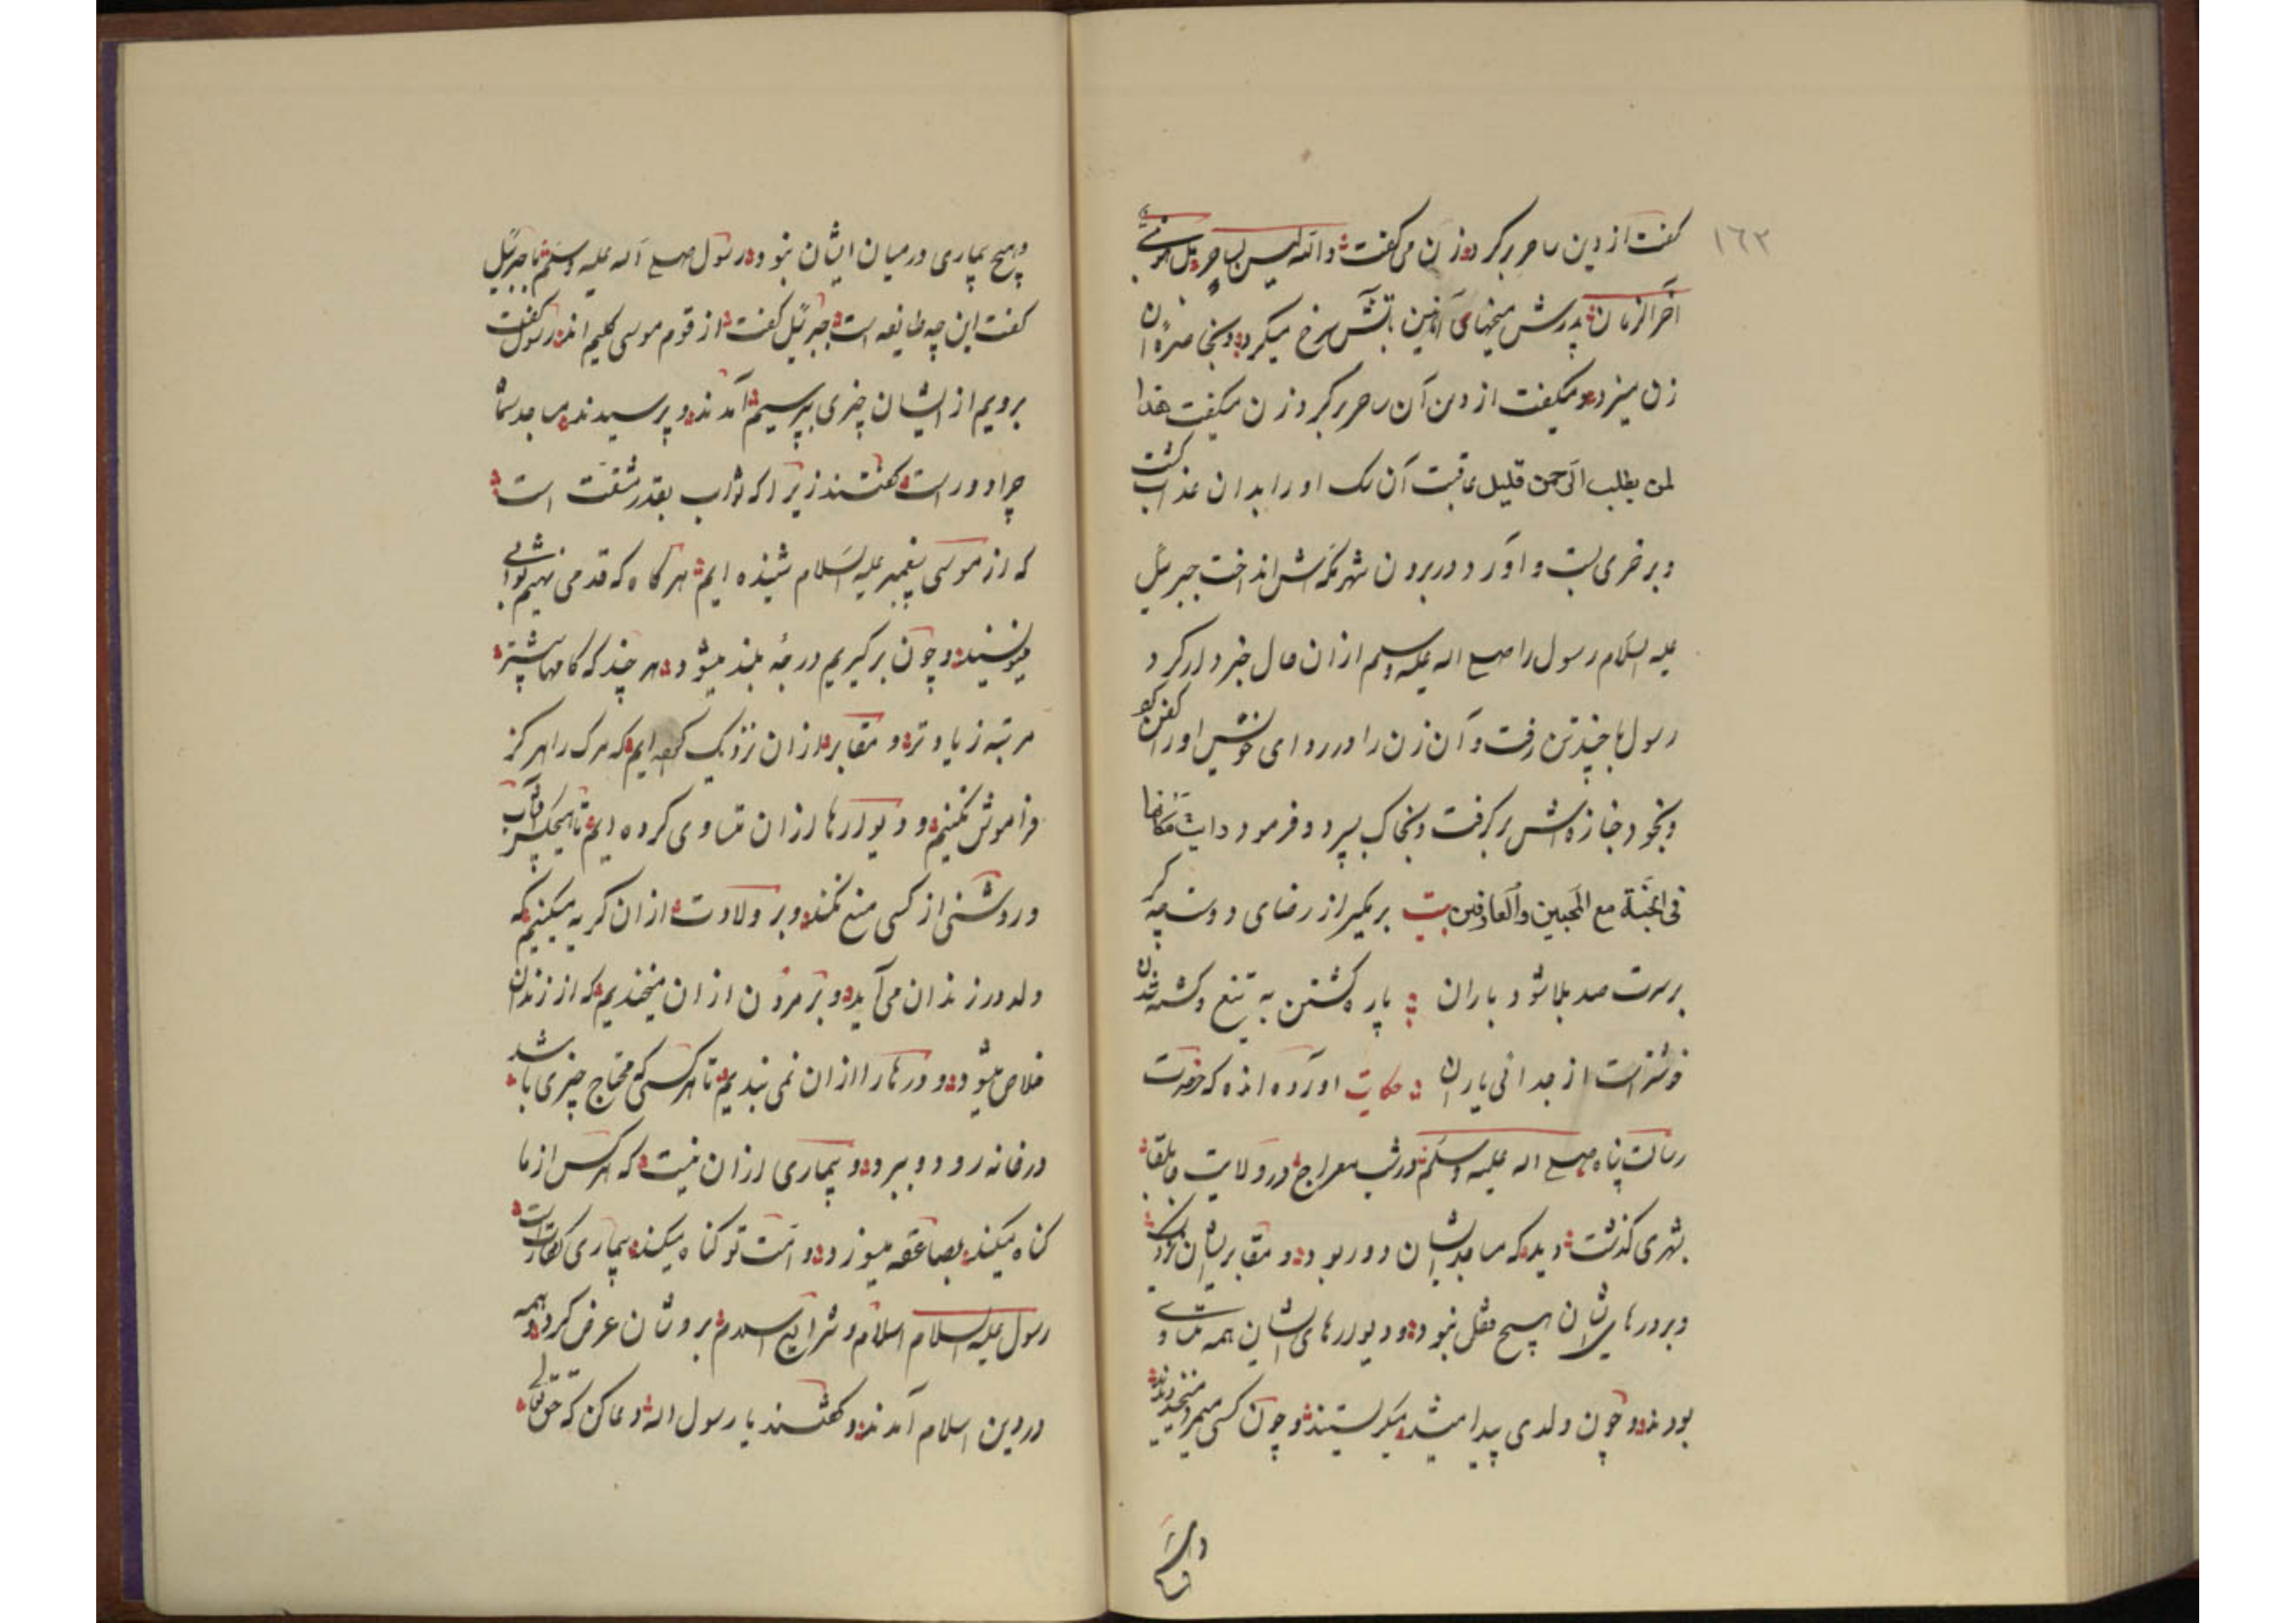 ۱۶۲
گفت از دین ساحر برگرد و زن می گفت والله لیس بساحر بل هو نبی
آخر الزمان پدرش میخهای آهنین بآتش سرخ میکرد و بر
زن میزد و میگفت از دین آن ساحر برگرد زن میگفت هذا
لمن یطلب الرحمن قلیل عاقبت آن سک او را بدان عذاب کشت
و بر خری بست و آورد و در برون شهر مکه اش انداخت جبرئیل
علیه السلام رسول را صلی الله علیه وسلم از ان حال خبردار کرد
رسول با چند تن رفت و آن زن را در ردای خویش او را کفن کرد
و بخود جنازه اش بر کرفت و بخاک سپرد و فرمود رایت مکانها
فی الجنة مع المحبین والعارفین بیت بر مگیر از رضای دوست چه کر
بر سرت صد بلا شود باران پاره گشتن به تیغ و کشته شدن
خوشتر است از جدائی یاران حکایت آورده اند که حضرت
رسالت پناه صلی الله علیه وسلم در شب معراج در ولایت جابلقا
بشهری کذشت دید که مساجد ایشان دور بود و مقابر ایشان نزدیک
و بر درهای ایشان هیچ قفل نبود و دیوارهای ایشان همه متساوی
بودند و چون ولدی پیدا میشد میگریستند و چون کسی میمرد میخندیدند
و هیچ
و هیچ بیماری در میان ایشان نبود رسول صلی الله علیه وسلم با جبرئیل
گفت این چه طایفه است جبرئیل گفت از قوم موسی کلیم اند رسول گفت
برویم از ایشان چیزی بپرسیم آمدند و پرسیدند مساجد شما
چرا دور است گفتند زیرا که ثواب بقدر مشقت است
که از موسی پیغمبر علیه السلام شنیده ایم هر کاه که قدمی نهیم ثوابی
مینویسند و چون بر گیریم درجهٔ بلند میشود هر چند که کامها بیشتر
مرتبه زیادتر و مقابر از ان نزدیک کرده ایم که مرک را هرکز
فراموش نکنیم و دیوارها از ان متساوی کرده ایم تا هیچکس آفتاب
و روشنی از کسی منع نکند و بر ولادت از ان گریه میکنیم که
ولد در زندان می آید و بر مردن از ان میخندیم که از زندان
خلاص میشود و درها را از ان نمی بندیم تا هر کسی که محتاج چیزی باشد
در خانه رود و ببرد و بیماری از ان نیست که هر کس از ما
کناه میکند بصاعقه میسوزد و امت تو کناه میکند بیماری کفارت است
رسول علیه السلام اسلام و شرایع اسلام بر وشان عرض کرد همه
در دین اسلام آمدند و گفتند یا رسول الله دعا کن که حق تعالی